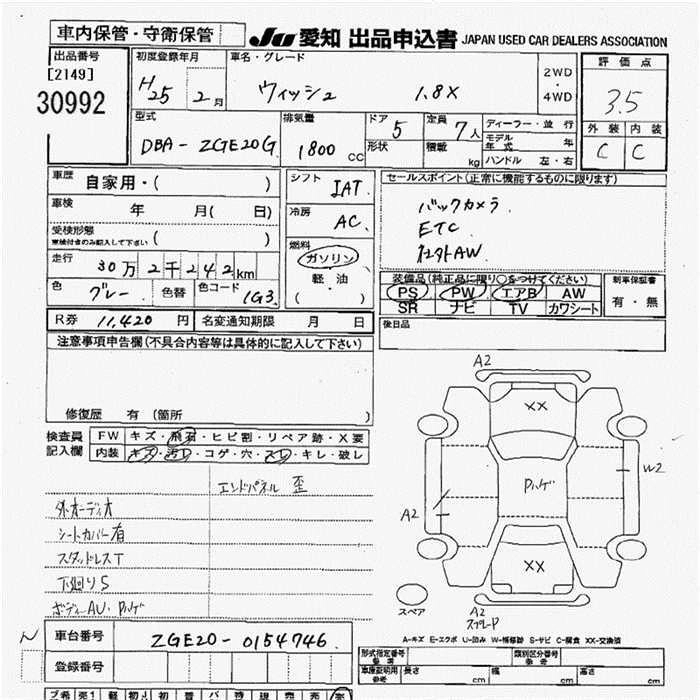 車内保管・守衛保管
JU 愛知 出品申込書 JAPAN USED CAR DEALERS ASSOCIATION
出品番号
[2149]
30992
初度登録年月
H25 2月
車名・グレード
ウィッシュ 1.8X
2WD
・
4WD
評価点
3.5
外装 内装
C C
型式
DBA-ZGE20G
排気量
1800 cc
ドア 5
形状
定員 7人
積載 kg
ディーラー・並行
モデル年式 年
ハンドル 左・右
車歴 自家用・( )
車検 年 月( 日)
受検形態
車検付きのみ記入して下さい ( )
走行 30万2千242km
色 グレー 色替 色コード 1G3
シフト IAT
冷房 AC
燃料
ガソリン
軽・油
( )
セールスポイント(正常に機能するものに限ります)
バックカメラ
ETC
社外AW
装備品(純正品に限り○をつけてください)
PS PW エアB AW
SR ナビ TV カワシート
新車保証書
有・無
後日品
R券 11,420円 名変通知期限 月 日
注意事項申告欄(不具合内容等は具体的に記入して下さい)
修復歴 有 (箇所 )
検査員
記入欄
FW キズ・飛石・ヒビ割・リペア跡・X要
内装 キズ・汚レ・コゲ・穴・スレ・キレ・破レ
エンドパネル 歪
外オーディオ
シートカバー有
スタッドレスT
下廻りS
ボディーAU・Pハゲ
A2
XX
Pハゲ
W2
A2
XX
スペア
A2
スプレーP
A-キズ E-エクボ U-凹み W-補修跡 S-サビ C-腐食 XX-交換済
車台番号 ZGE20-0154746
登録番号
形式指定番号
類別区分番号
車庫証明用
参考
長さ cm 幅 cm 高さ cm